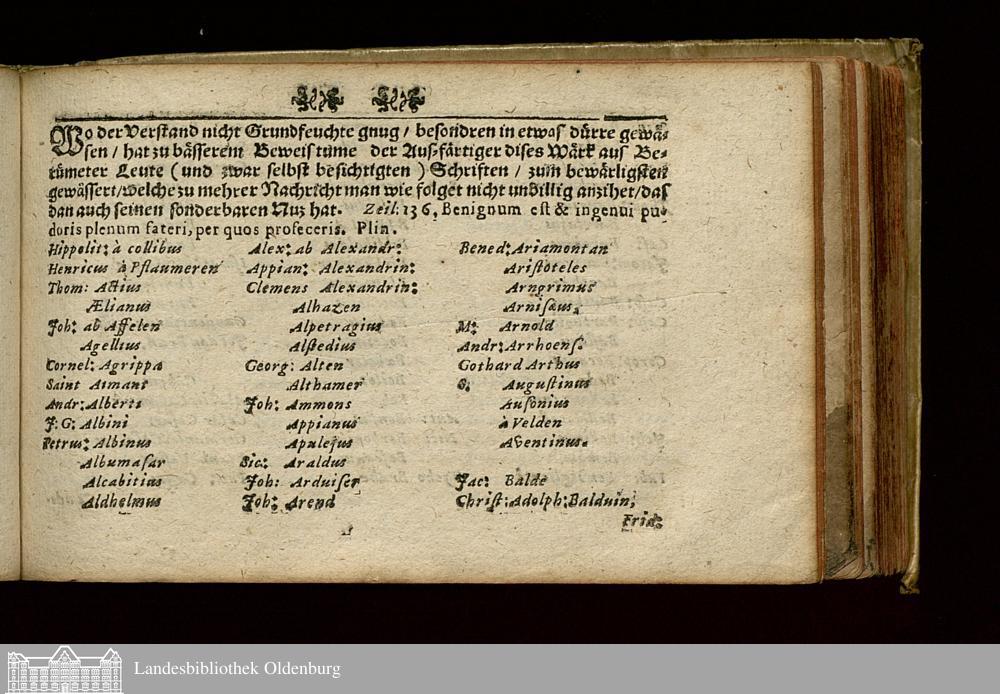 Wo der Verstand nicht Grundfeuchte gnug / besondren in etwas dürre gewä-
sen / hat zu bässerem Beweistume der Aus-färtiger dises Wärk aus Be-
rümeter Leute (und zwar selbst besichtigten) Schriften / zum bewärligsten
gewässert / welche zu mehrer Nachricht man wie folget nicht unbillig anzihet / das
dan auch seinen sonderbaren Nuz hat. Zeil: 136. Benignum est & ingenui pu-
doris plenum fateri, per quos profeceris. Plin.
Hippolit: à collibus
Henricus à Pflaumeren
Thom: Actius
Ælianus
Joh: ab Affelen
Agellius
Cornel: Agrippa
Saint Aimant
Andr: Alberti
J: G: Albini
Petrus: Albinus
Albumasar
Alcabitius
Aldhelmus
Alex: ab Alexandr:
Appian: Alexandrin:
Clemens Alexandrin:
Alhazen
Alpetragius
Alstedius
Georg: Alten
Althamer
Joh: Ammons
Appianus
Apulejus
Sic: Araldus
Joh: Arduiser
Joh: Arend
Bened: Ariamontan
Aristoteles
Arngrimus
Arnisæus,
M: Arnold
Andr: Arrhoens:
Gothard Arthus
S. Augustinus
Ausonius
à Velden
Aventinus.
Jac: Balde
Christ: Adolph: Balduin;
Frid:
Landesbibliothek Oldenburg